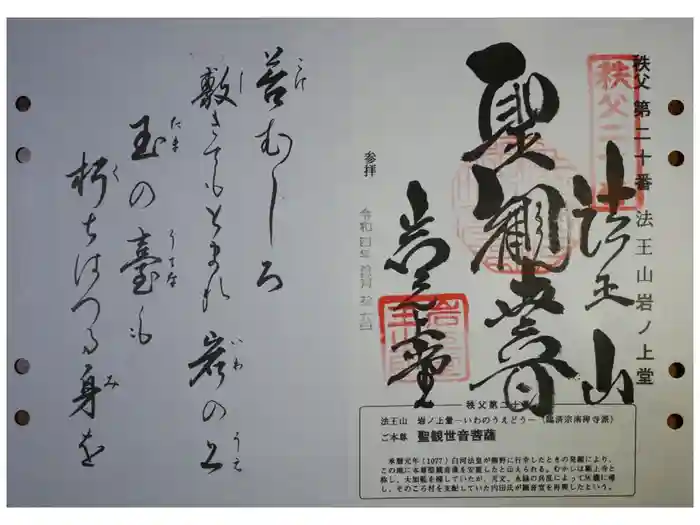 秩父第二十番 法王山岩ノ上堂
秩父二十
法王山
聖観世音
岩之上堂
参拝
令和四年拾
苔むしろ
こけ
敷きてもとまれ岩の上
し
いわ
うえ
玉の臺も
たま
うてな
朽ちはつる身を
く
み
秩父第二十番
法王山 岩ノ上堂―いわのうえどう―(臨済宗南禅寺派)
ご本尊 聖観世音菩薩
承暦元年(1077)白河法皇が熊野に行幸したときの発願により、
この地に本尊聖観音像を安置したと伝えられる。むかしは巌上寺と
称し、大伽藍を構していたが、天文、永禄の兵乱によって灰燼に帰
し、そのころ村を支配していた内田氏が観音堂を再興したという。